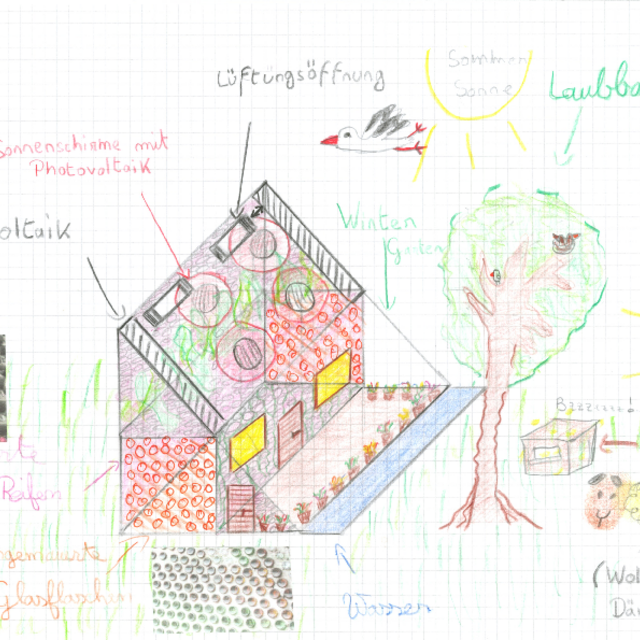 Lüftungsöffnung
Sommer
Sonne
Laubba
Sonnenschirme mit
Photovoltaik
oltaik
Winter
Garten
Bzzzzzzz!
Reifen
gemauerte
Glasflaschen
Wasser
(Wol
Dä